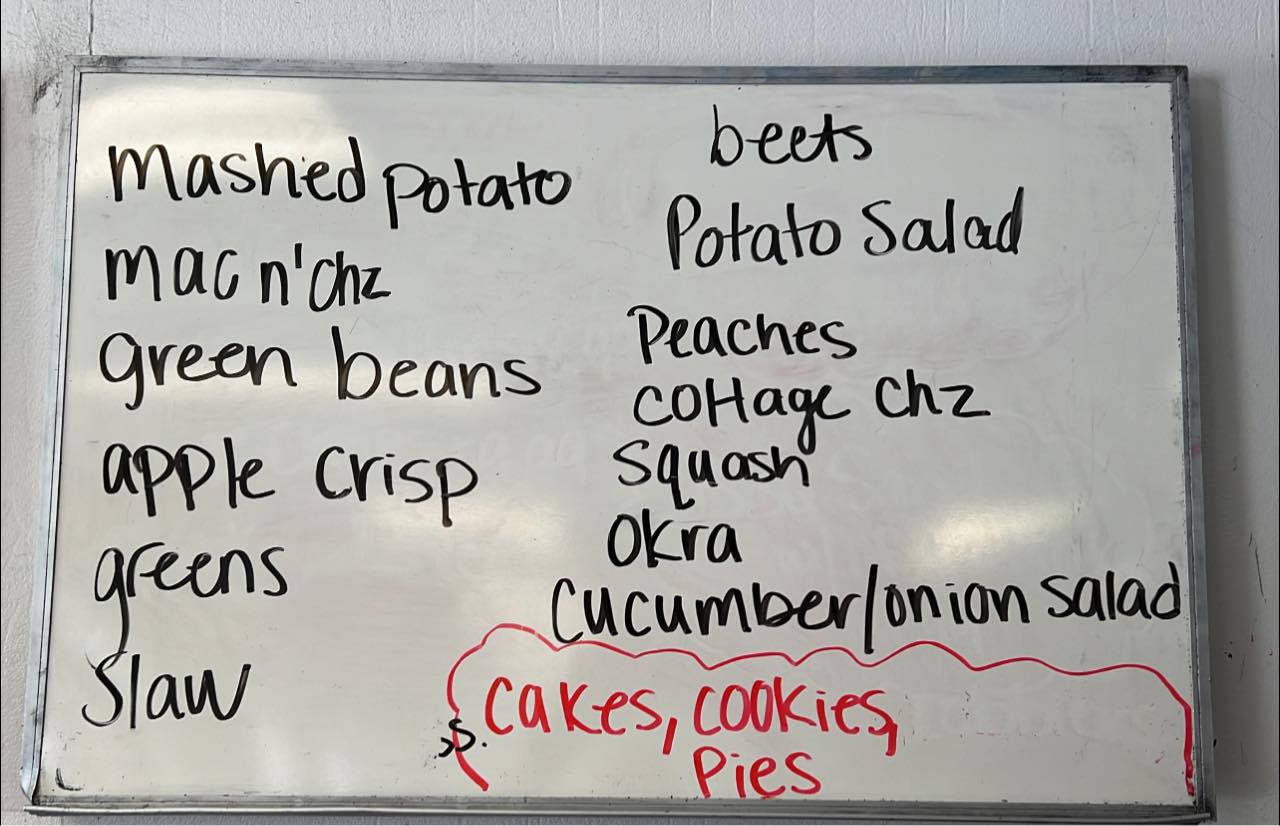 mashed potato
mac n'chz
green beans
apple crisp
greens
Slaw
beets
Potato Salad
Peaches
cottage chz
Squash
Okra
Cucumber/onion salad
cakes, cookies,
Pies